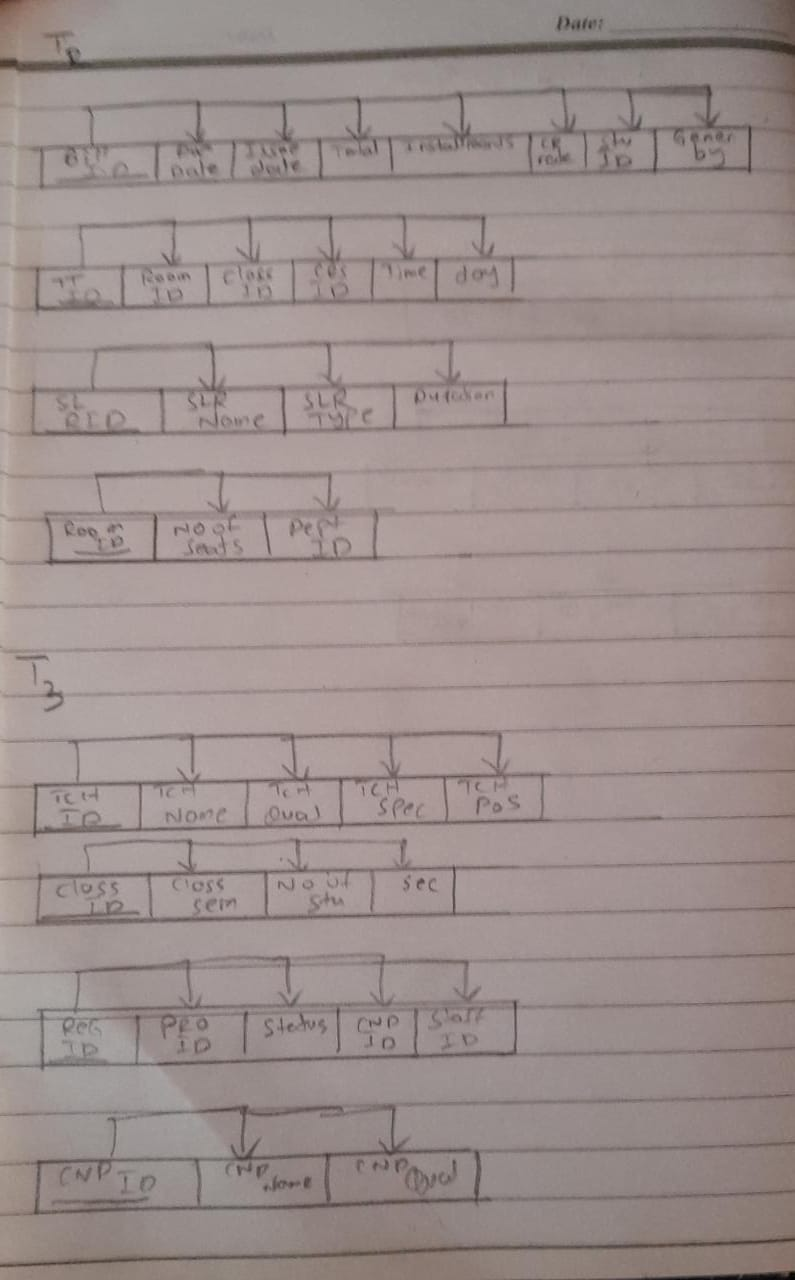 Date:
T2
Bill ID Due Date Issue date Total Installments CR code Stu ID Gener by
TT ID Room ID Class ID CRS ID Time day
SL RID SLR Name SLR Type Duration
Room ID No of Seats Dept ID
T3
TCH ID TCH Name TCH Qual TCH Spec TCH Pos
Class ID Class sem No of Stu Sec
REG ID PRO ID Status CND ID Staff ID
CND ID CND Name CND Qual